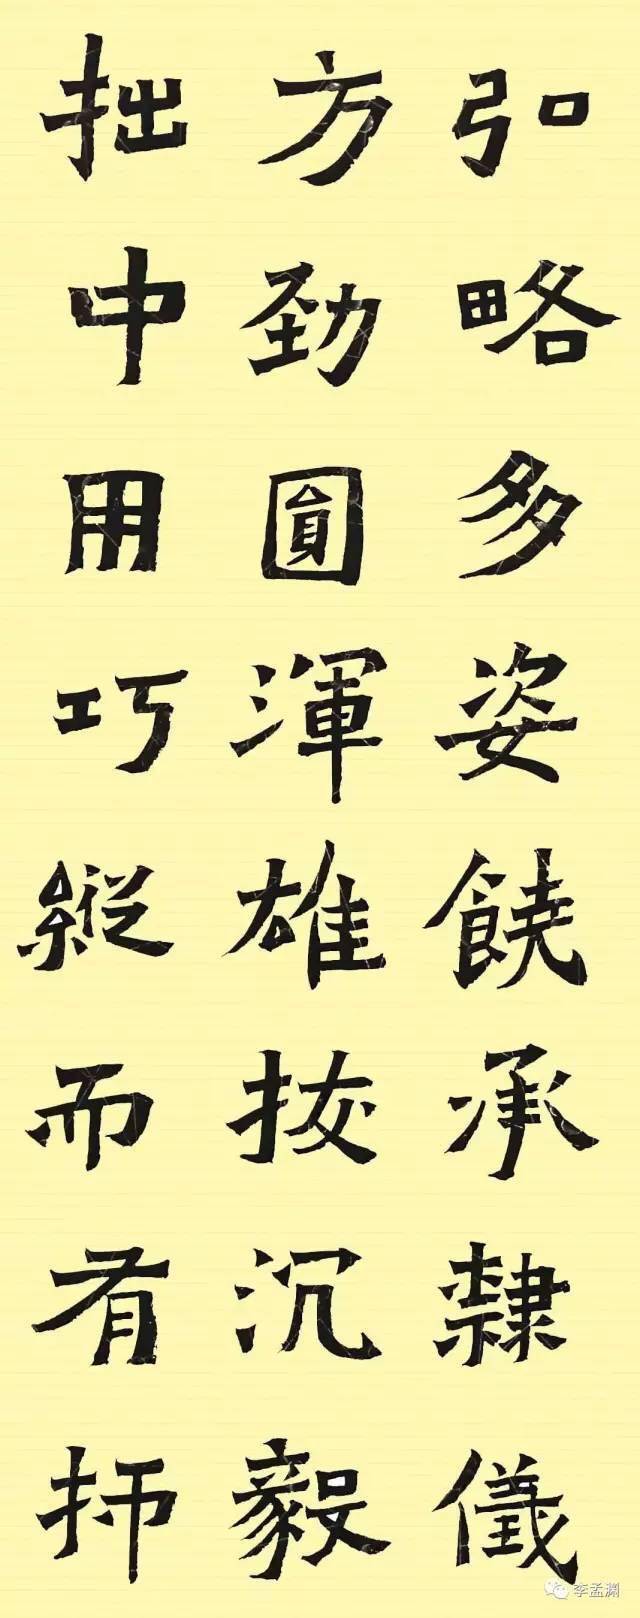 弘略多姿饒承隸儀
方勁圓渾雄拔沉毅
拙中用巧縱而有師
李孟渊